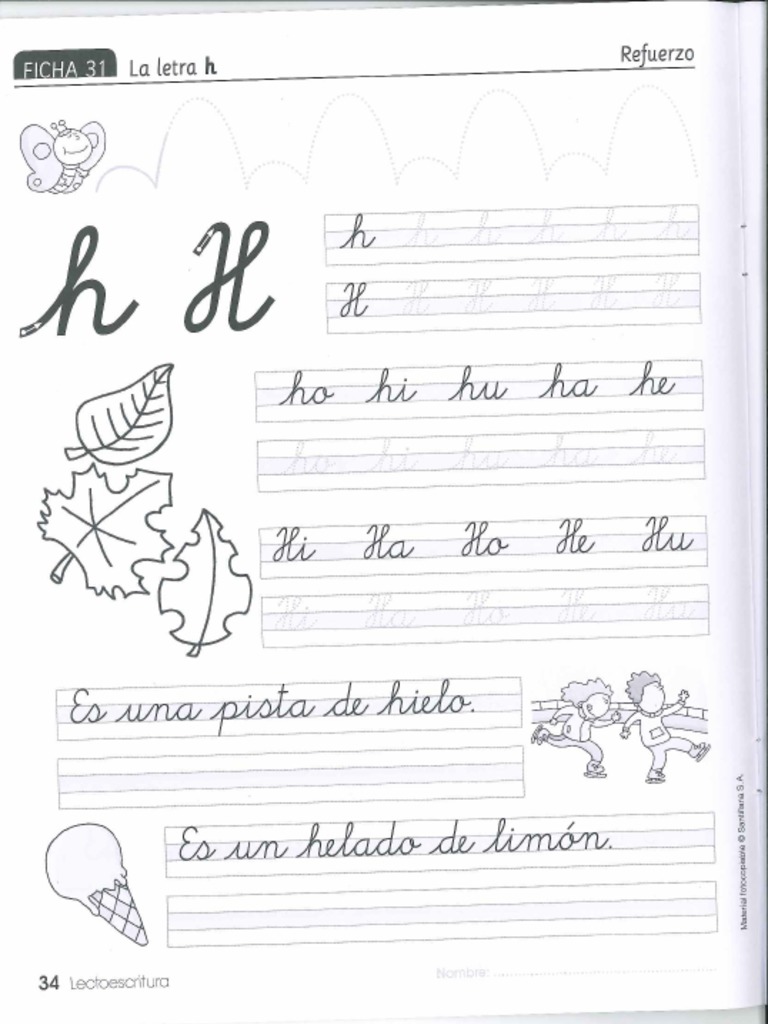 FICHA 31 La letra h Refuerzo
h h h h h h
h H
H H H H H H
ho hi hu ha he
ho hi hu ha he
Hi Ha Ho He Hu
Hi Ha Ho He Hu
Es una pista de hielo.
Es un helado de limón.
Material fotocopiable © Santillana S.A.
34 Lectoescritura
Nombre: